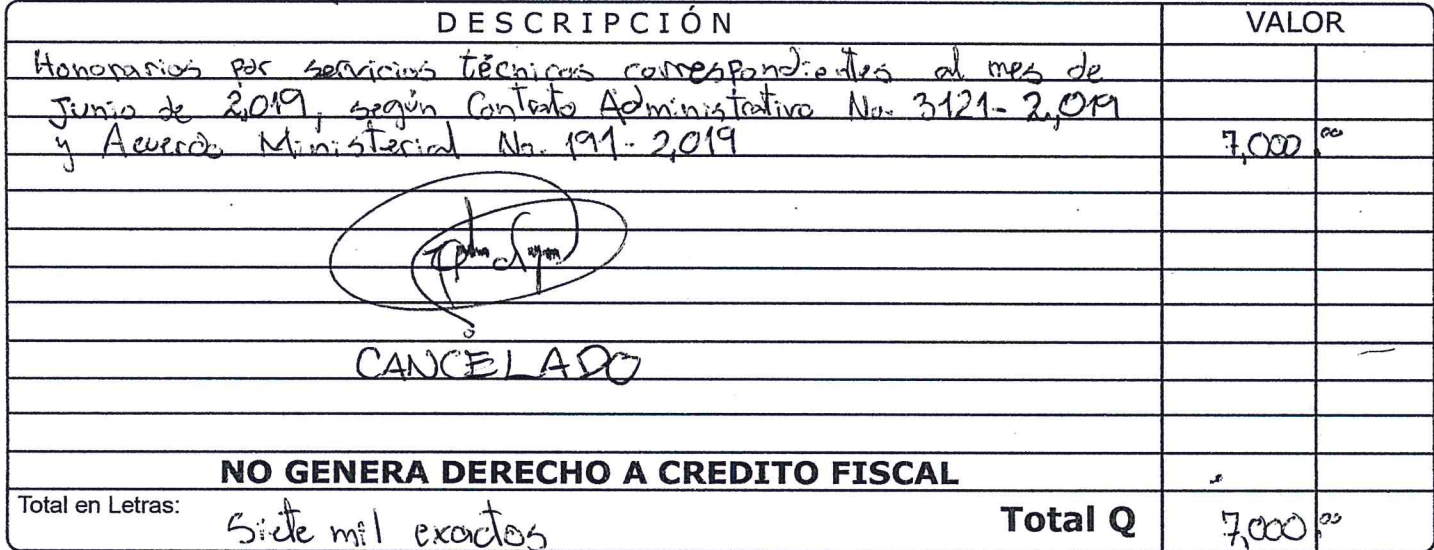 DESCRIPCIÓN VALOR
Honorarios por servicios técnicos correspondientes al mes de
Junio de 2,019, según Contrato Administrativo No. 3121-2,019
y Acuerdo Ministerial No. 191-2,019 7,000.00
CANCELADO
NO GENERA DERECHO A CREDITO FISCAL
Total en Letras: Siete mil exactos Total Q 7,000.00